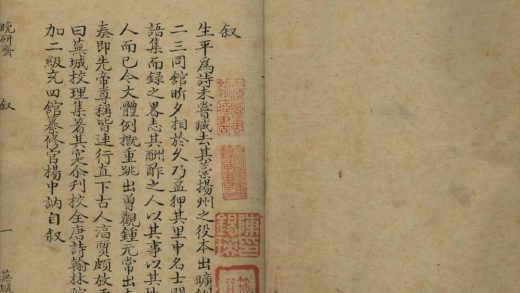 叙
生平為詩未嘗感去其藁揚州之役本出曠
二三同館昕夕相於久乃益狎其里中名士閒
語集而錄之畧志其酬酢之人以其事以其地
人而已今大體例擬重跳出曾觀鍾元常出
奏即先帝尊稱皆連行直下古人淳質頗放
曰蕪城校理集著其實介刊校全唐詩翰林院
加二級充四館纂修官楊中訥自叙
晩研齋
叙
一
蕪城